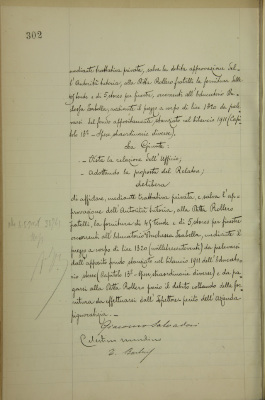 302
mediante trattativa privata, salva la debita approvazione del-
l'Autorità tutoria, alla Ditta Rollero fratelli la fornitura delle
tende e di 5 stores per finestre, occorrenti all'Educatorio
Isabella, mediante il prezzo a corpo di lire 1320 da prele-
varsi dal fondo appositamente stanziato nel bilancio 1911 (Capi-
tolo 13° - Spese straordinarie diverse).
La Giunta:
- Udita la relazione dell'Ufficio;
- Adottando la proposta del Relatore;
delibera
di affidare, mediante trattativa privata, e salva l'ap-
provazione dell'Autorità tutoria, alla Ditta Rollero
fratelli, la fornitura di tende e di 5 stores per finestre
occorrenti all'Educatorio Duchessa Isabella, mediante il
prezzo a corpo di lire 1320 (milletrecentoventi) da prelevarsi
dall'apposito fondo stanziato nel bilancio 1911 dell'Educato-
rio stesso (Capitolo 13° - Spese straordinarie diverse) e da pa-
garsi alla Ditta Rollero previo il debito collaudo della for-
nitura da effettuarsi dall'Ispettore perito dell'Azienda
pignoratizia.
Giacomo Salvadori